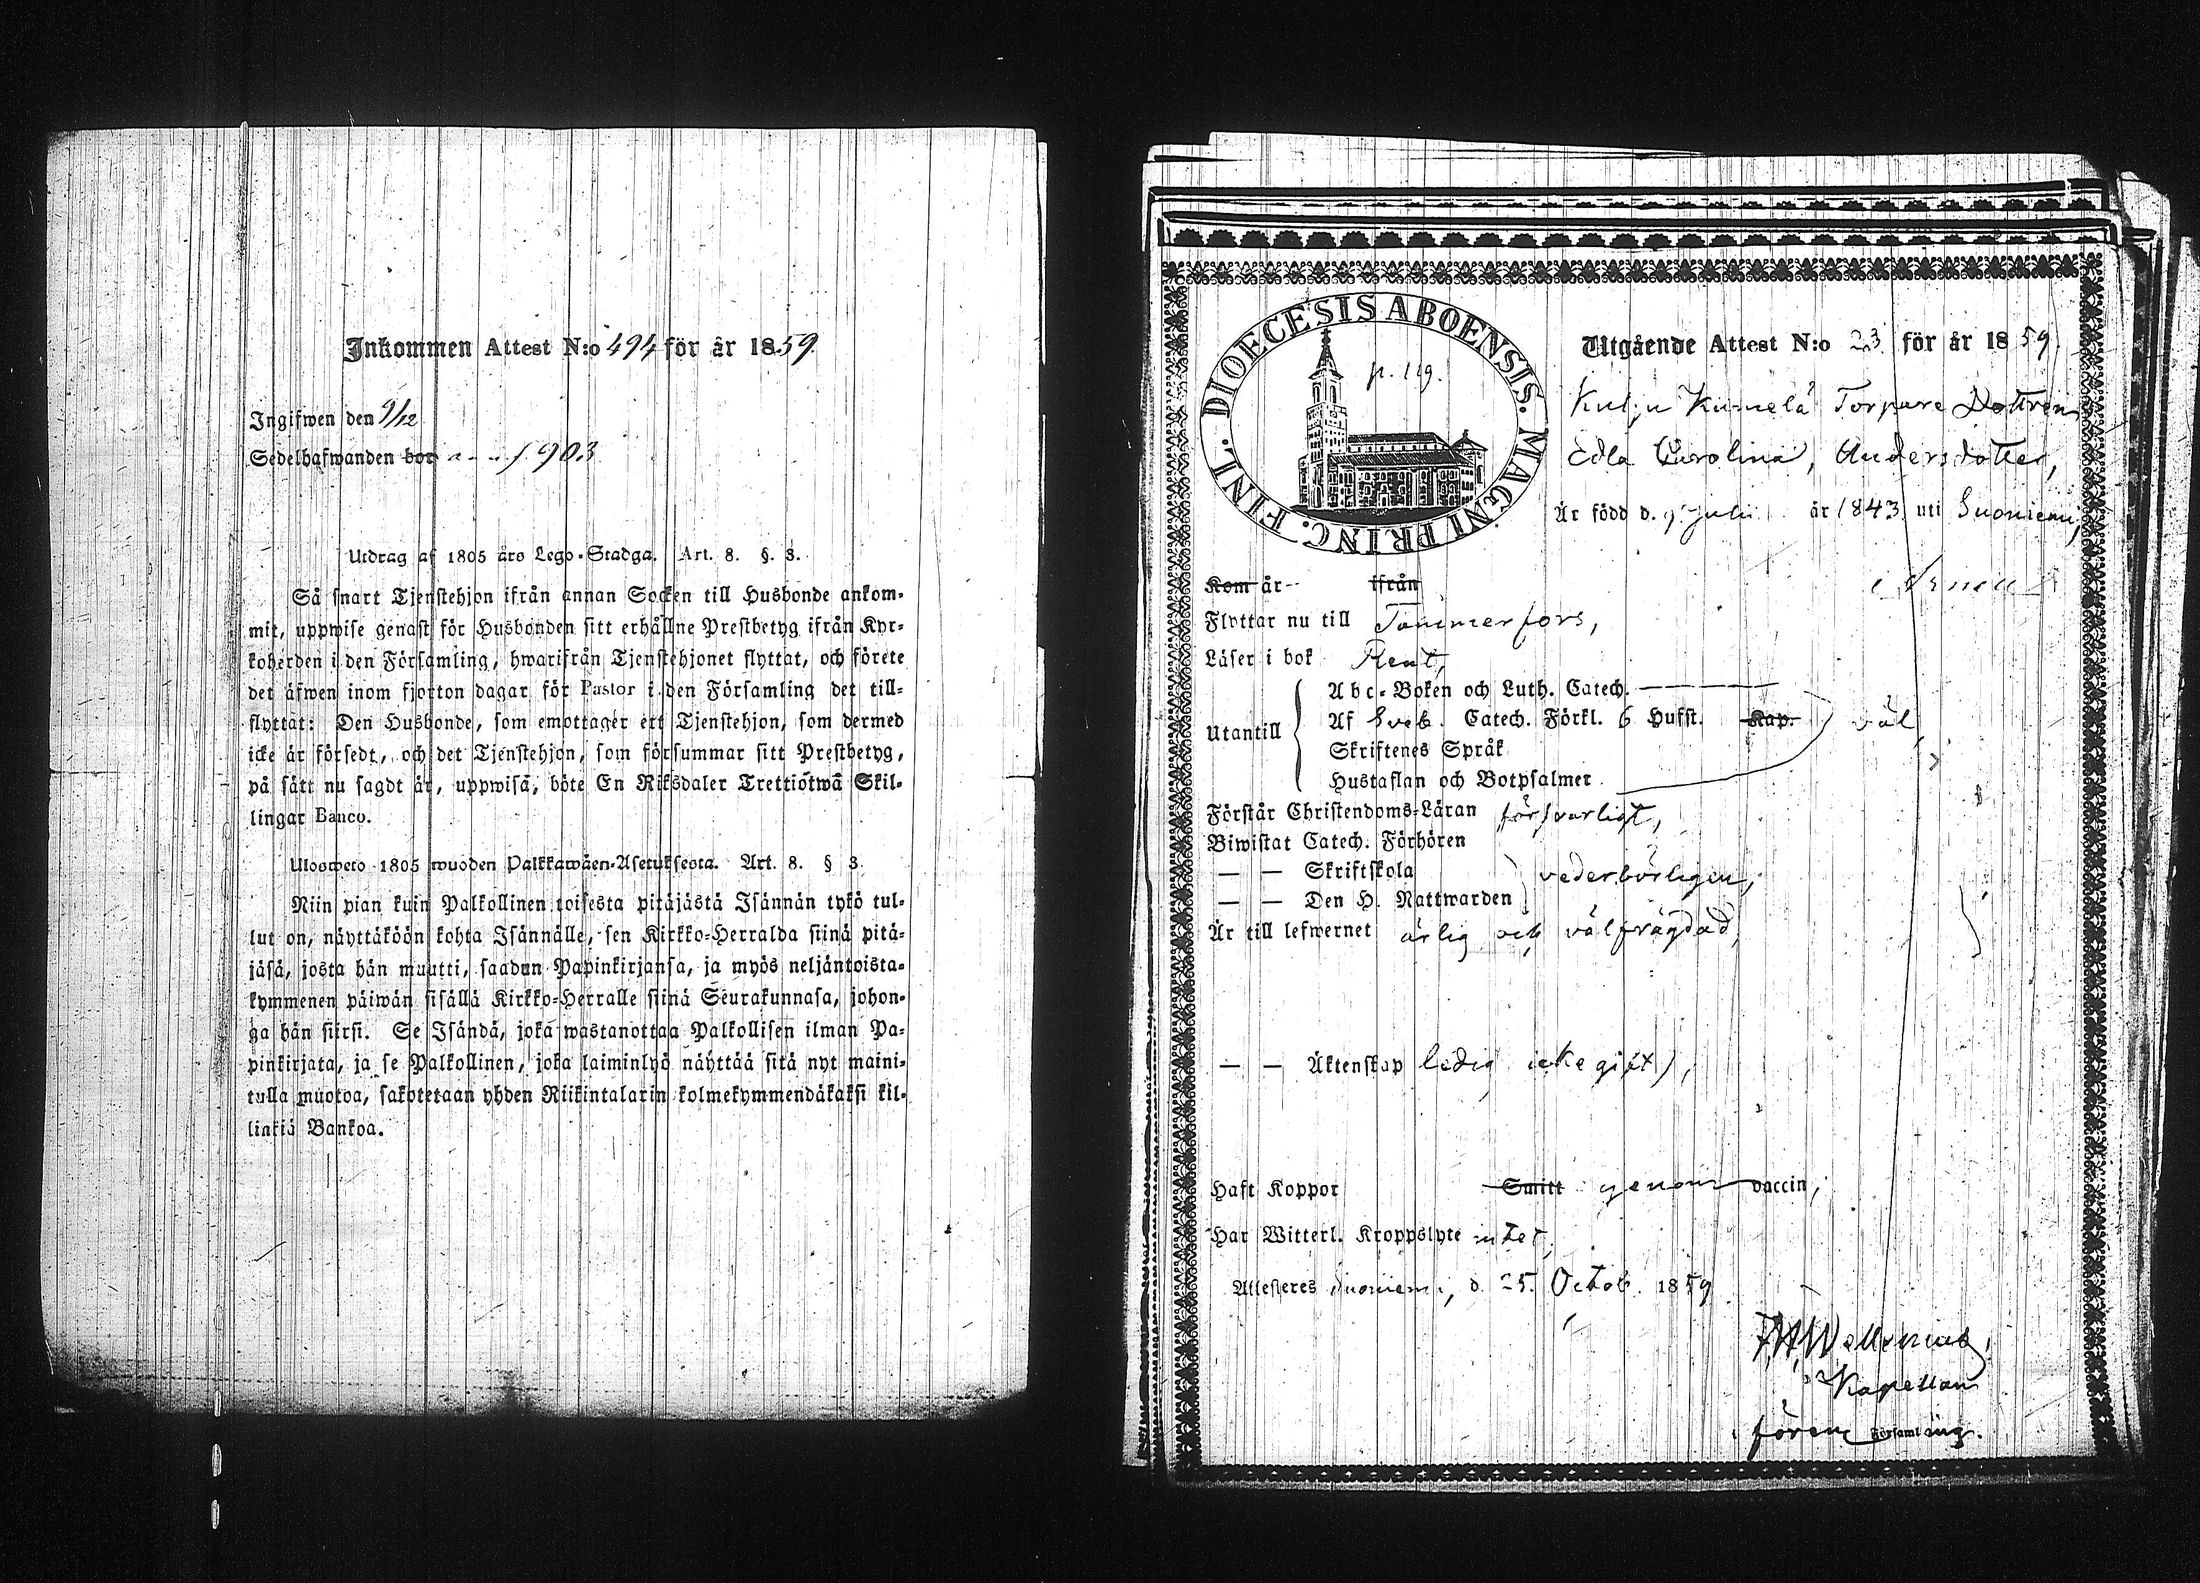 Inkommen Attest N:o 494 för år 1859.
Ingifwen den 9/12
Sedelhafwanden bor 903
Utdrag af 1805 års Lego-Stadga. Art. 8. §. 3.
Så snart Tjenstehjon ifrån annan Socken till Husbonde ankom-
mit, uppwise genast för Husbonden sitt erhållne Prestbetyg ifrån Kyr-
koherden i den Församling, hwarifrån Tjenstehjonet flyttat, och förete
det äfwen inom fjorton dagar för Pastor i den Församling det till-
flyttat: Den Husbonde, som emottager ett Tjenstehjon, som dermed
icke är försedt, och det Tjenstehjon, som försummar sitt Prestbetyg,
på sätt nu sagdt är, uppwisa, böte En Riksdaler Trettiotwå Skil-
lingar Banco.
Ulosweto 1805 wuoden Palkkawäen-Asetuksesta. Art. 8. § 3.
Niin pian kuin Palkollinen toisesta pitäjästä Isännän tykö tul-
lut on, näyttäköön kohta Isännälle, sen Kirkko-Herralda siinä pitä-
jäsä, josta hän muutti, saadun Papinkirjansa, ja myös neljäntoista-
kymmenen päiwän sisällä Kirkko-Herralle siinä Seurakunnasa, johon-
ga hän siirsi. Se Isändä, joka wastanottaa Palkollisen ilman Pa-
pinkirjata, ja se Palkollinen, joka laiminlyö näyttää sitä nyt maini-
tulla muotoa, sakotetaan yhden Riikintalarin kolmekymmendäkaksi kil-
linkiä Bankoa.
DIOECESIS ABOENSIS. MAGNI PRINC. FINL.
p. 119.
Utgående Attest N:o 23 för år 1859.
Kulju Kumelä Torpare Dottren
Edla Carolina, Andersdotter,
Är född d. 9 Juli år 1843 uti Suoniemi,
Kom år ifrån
Flyttar nu till Tammerfors,
Läser i bok Rent,
Utantill
Abc-Boken och Luth. Catech.
Af Sveb. Catech. Förkl. 6 Hufst. Kap. väl
Skriftenes Språk
Hustaflan och Botpsalmer
Förstår Christendoms-Läran försvarligt,
Biwistat Catech. Förhören
— — Skriftskola vederbörligen,
— — Den H. Nattwarden
Är till lefwernet ärlig och välfrägdad,
— — Äktenskap ledig icke gift),
Haft Koppor Smitt genom vaccin,
Har Witterl. Kroppslyte intet,
Attesteres Suoniemi, d. 25. Octob. 1859
Kapellan
Församling.